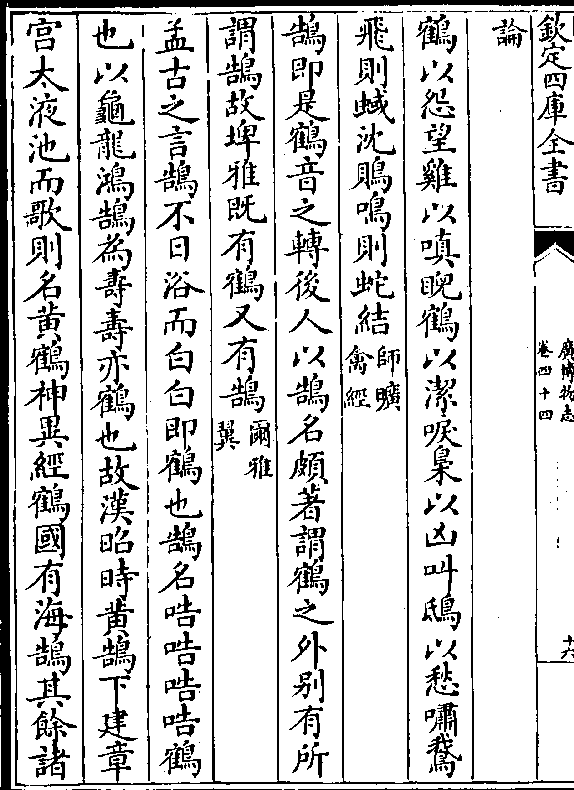 欽定四庫全書
廣博物志
卷四十四
十六
論
鶴以怨望雞以嗔睨鶴以潔唳梟以凶叫鴟以愁嘯鵞
飛則蜮沈鵙鳴則蛇結師曠禽經
鵠即是鶴音之轉後人以鵠名頗著謂鶴之外别有所
謂鵠故埤雅既有鶴又有鵠爾雅翼
盖古之言鵠不日浴而白白即鶴也鵠名哠哠哠哠鶴
也以龜龍鴻鵠為壽壽亦鶴也故漢昭時黄鵠下建章
宫太液池而歌則名黄鶴神異經鶴國有海鵠其餘諸